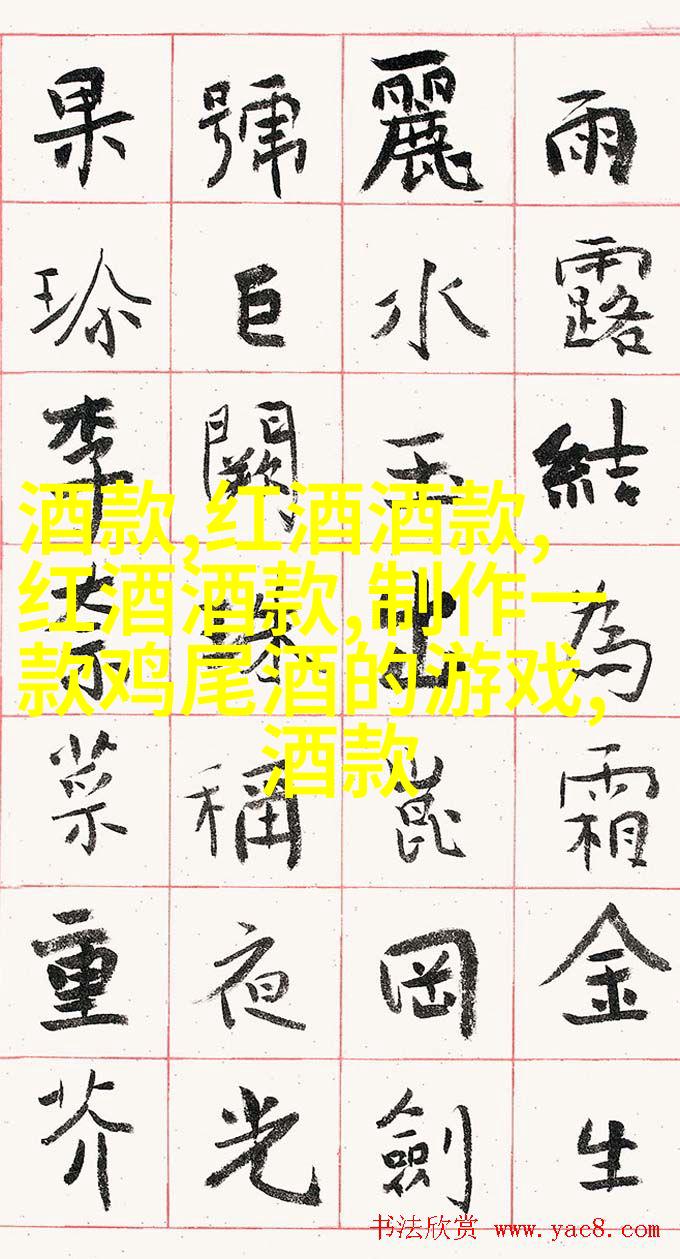 雨露結為霜金生
麗水玉出崑岡劍
號巨闕珠稱夜光
果珍李柰菜重芥
酒款,红酒酒款,
红酒酒款,制作一
款鸡尾酒的游戏,
酒款
书法欣赏 www.yac8.com